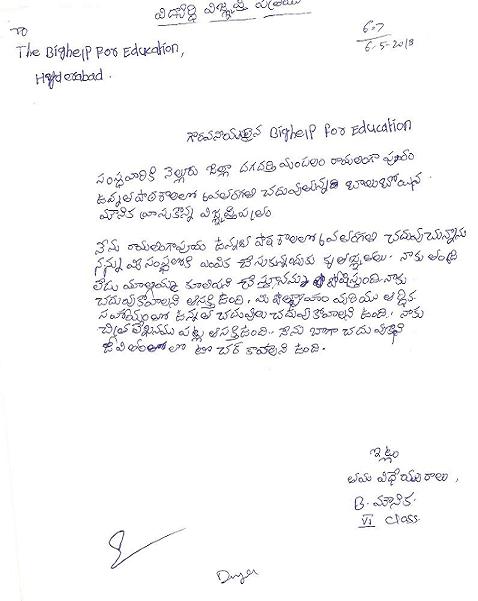 విద్యార్థి విజ్ఞప్తి పత్రము
To
The Bighelp For Education,
Hyderabad.
6-7
6-5-2018
గౌరవనీయులైన Bighelp For Education
సంస్థవారికి నెల్లూరు జిల్లా దగదర్తి మండలం
ఉన్నత పాఠశాలలో 6వతరగతి చదువుతున్న
మౌనిక వ్రాసుకొన్న విజ్ఞప్తి పత్రం
నేను ఉన్నత పాఠశాలలో 6వతరగతి చదువుచున్నాను
నన్ను మీ సంస్థలోకి ఎంపిక చేసుకున్నందుకు కృతజ్ఞతలు. నాకు తండ్రి
లేడు మా అమ్మ కూలిపని చేస్తూ నన్ను పోషిస్తుంది. నాకు
చదువుకోవాలని ఆసక్తి ఉంది. మీ ప్రోత్సాహం మరియు ఆర్థిక
సహాయంతో ఉన్నత చదువులు చదువుకోవాలని ఉంది. నాకు
చిత్రలేఖనము పట్ల ఆసక్తి ఉంది. నేను బాగా చదువుకొని
జీవితంలో టీచర్ కావాలని ఉంది.
ఇట్లు
తమ విధేయురాలు,
B. మౌనిక
VI class.